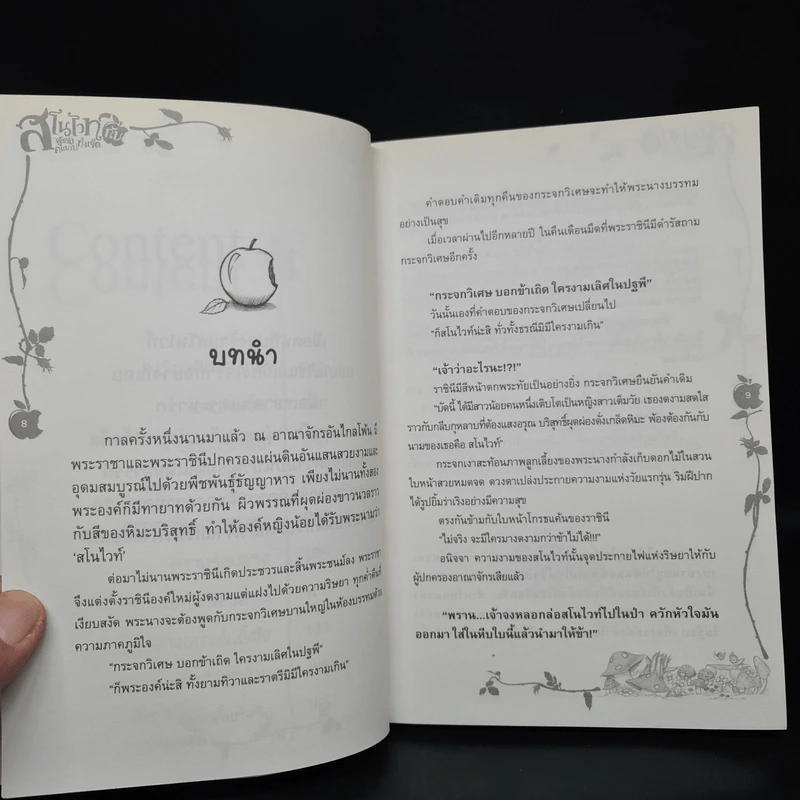 สโนไวท์กับ
8
บทนำ
กาลครั้งหนึ่งนานมาแล้ว ณ อาณาจักรอันไกลโพ้น มี
พระราชาและพระราชินีปกครองแผ่นดินอันแสนสวยงามและ
อุดมสมบูรณ์ไปด้วยพืชพันธุ์ธัญญาหาร เพียงไม่นานทั้งสอง
พระองค์ก็มีทายาทด้วยกัน ผิวพรรณที่ผุดผ่องขาวนวลราว
กับสีของหิมะบริสุทธิ์ ทำให้องค์หญิงน้อยได้รับพระนามว่า
‘สโนไวท์’
ต่อมาไม่นานพระราชินีเกิดประชวรและสิ้นพระชนม์ลง พระราชา
จึงแต่งตั้งราชินีองค์ใหม่ผู้งดงามแต่แฝงไปด้วยความริษยา ทุกค่ำคืนที่
เงียบสงัด พระนางจะต้องพูดกับกระจกวิเศษบานใหญ่ในห้องบรรทมด้วย
ความภาคภูมิใจ
“กระจกวิเศษ บอกข้าเถิด ใครงามเลิศในปฐพี”
“ก็พระองค์น่ะสิ ทั้งยามทิวาและราตรีมิมีใครงามเกิน”
คำตอบคำเดิมทุกคืนของกระจกวิเศษจะทำให้พระนางบรรทม
อย่างเป็นสุข
เมื่อเวลาผ่านไปอีกหลายปี ในคืนเดือนมืดที่พระราชินีมีดำรัสถาม
กระจกวิเศษอีกครั้ง
“กระจกวิเศษ บอกข้าเถิด ใครงามเลิศในปฐพี”
วันนั้นเองที่คำตอบของกระจกวิเศษเปลี่ยนไป
“ก็สโนไวท์น่ะสิ ทั่วทั้งธรณีมิมีใครงามเกิน”
“เจ้าว่าอะไรนะ!?!”
ราชินีมีสีหน้าตกพระทัยเป็นอย่างยิ่ง กระจกวิเศษยืนยันคำเดิม
“บัดนี้ ได้มีสาวน้อยคนหนึ่งเติบโตเป็นหญิงสาวเต็มวัย เธองดงามสดใส
ราวกับกลีบกุหลาบที่ต้องแสงอรุณ บริสุทธิ์ผุดผ่องดั่งเกล็ดหิมะ พ้องต้องกันกับ
นามของเธอคือ สโนไวท์”
กระจกเงาสะท้อนภาพลูกเลี้ยงของพระนางกำลังเก็บดอกไม้ในสวน
ใบหน้าสวยหมดจด ดวงตาเปล่งประกายความงามแห่งวัยแรกรุ่น ริมฝีปาก
ได้รูปยิ้มร่าเริงอย่างมีความสุข
ตรงกันข้ามกับใบหน้าโกรธแค้นของราชินี
“ไม่จริง จะมีใครมางดงามกว่าข้าไม่ได้!!!”
อนิจจา ความงามของสโนไวท์นั้นจุดประกายไฟแห่งริษยาให้กับ
ผู้ปกครองอาณาจักรเสียแล้ว
“พราน...เจ้าจงหลอกล่อสโนไวท์ไปในป่า ควักหัวใจมัน
ออกมา ใส่ในหีบใบนี้แล้วนำมาให้ข้า!”
9